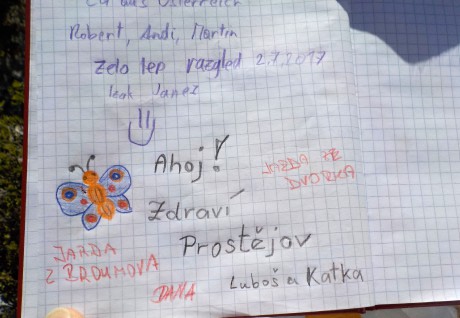 aus Österreich
Robert, Andi, Martin
Zelo lep razgled 2.7.2017
Janez
Ahoj!
JARDA ZE
DVORKA
Zdraví
Prostějov
JARDA
Z BROUMOVA
JANA
Luboš a Katka